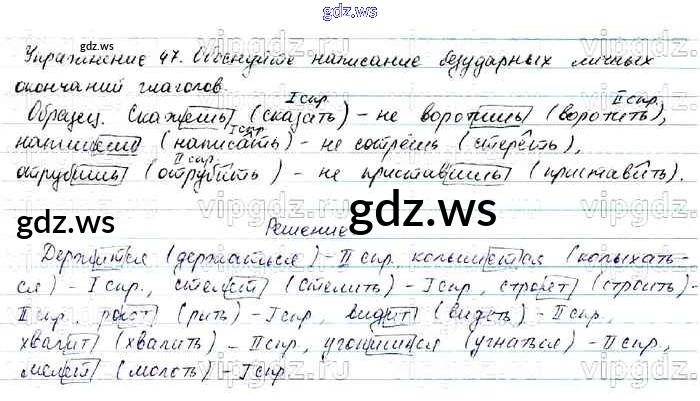 gdz.ws
gdz.ws
Упражнение 47. Обоснуйте написание безударных личных
окончаний глаголов.
I спр. II спр.
Образец. Скажешь (сказать) – не воротишь (воротить),
I спр.
напишешь (написать) – не сотрёшь (стереть),
II спр.
отрубишь (отрубить) – не приставишь (приставить).
gdz.ws gdz.ws
Решение
Держится (держаться) – II спр. колышется (колыхать-
ся) – I спр., стелет (стелить) – I спр., строет (строить) –
II спр., роет (рыть) – I спр., видит (видеть) – II спр.,
хвалит (хвалить) – II спр., угонишься (угнаться) – II спр.,
мелет (молоть) – I спр.